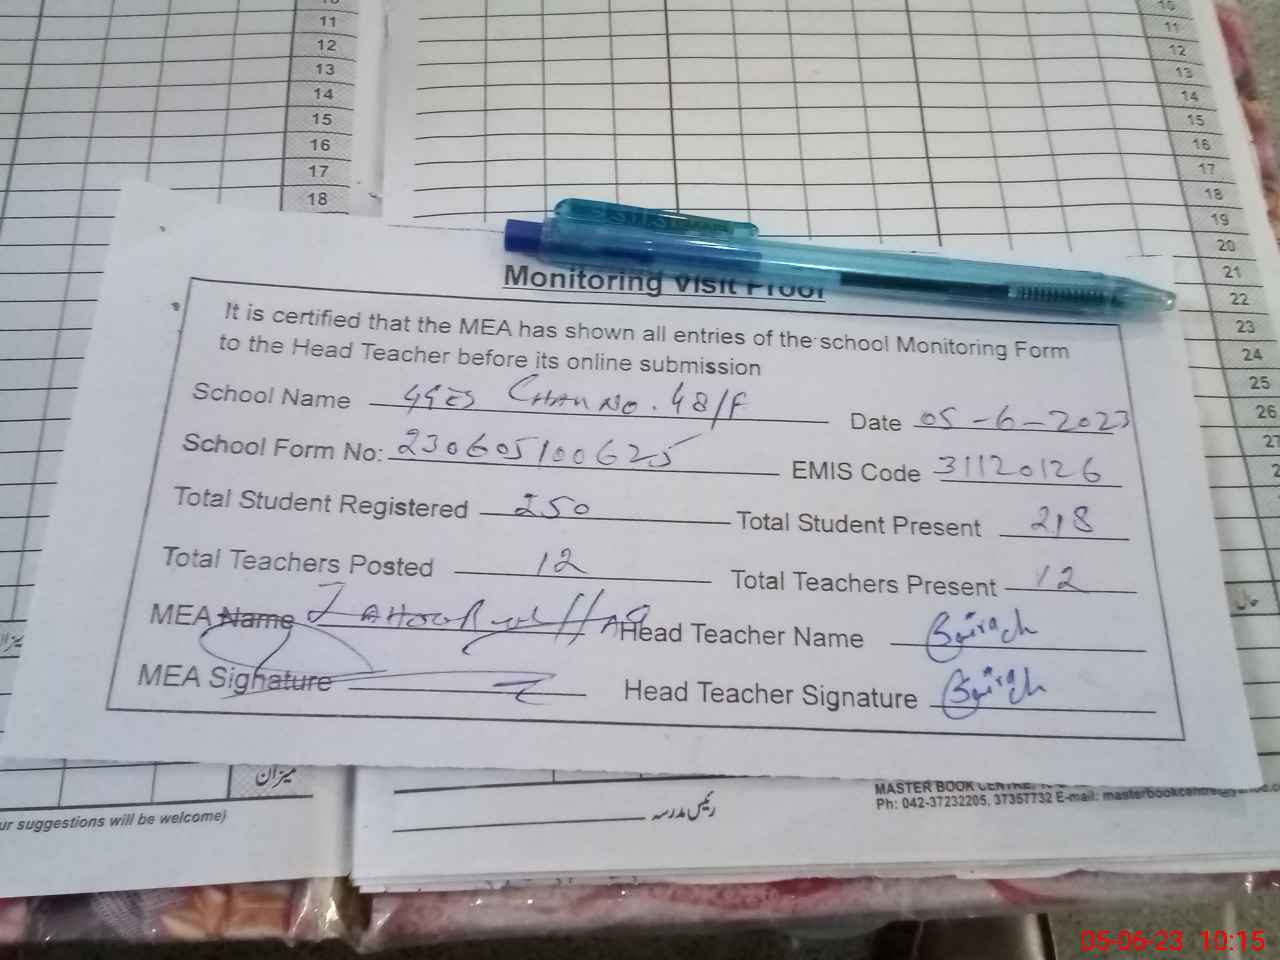 10
11
12
13
14
15
16
17
18
10
11
12
13
14
15
16
17
18
19
20
21
22
23
24
25
26
27
Monitoring Visit Proof
It is certified that the MEA has shown all entries of the school Monitoring Form
to the Head Teacher before its online submission
School Name GGES CHAK NO. 48/F Date 05-6-2023
School Form No: 230605100625 EMIS Code 31120126
Total Student Registered 250 Total Student Present 218
Total Teachers Posted 12 Total Teachers Present 12
MEA Name Head Teacher Name
MEA Signature Head Teacher Signature
میزان
ur suggestions will be welcome)
رئیس مدرسہ
MASTER BOOK CENTRE
Ph: 042-37232205, 37357732 E-mail: masterbookcentre
05-06-23 10:15